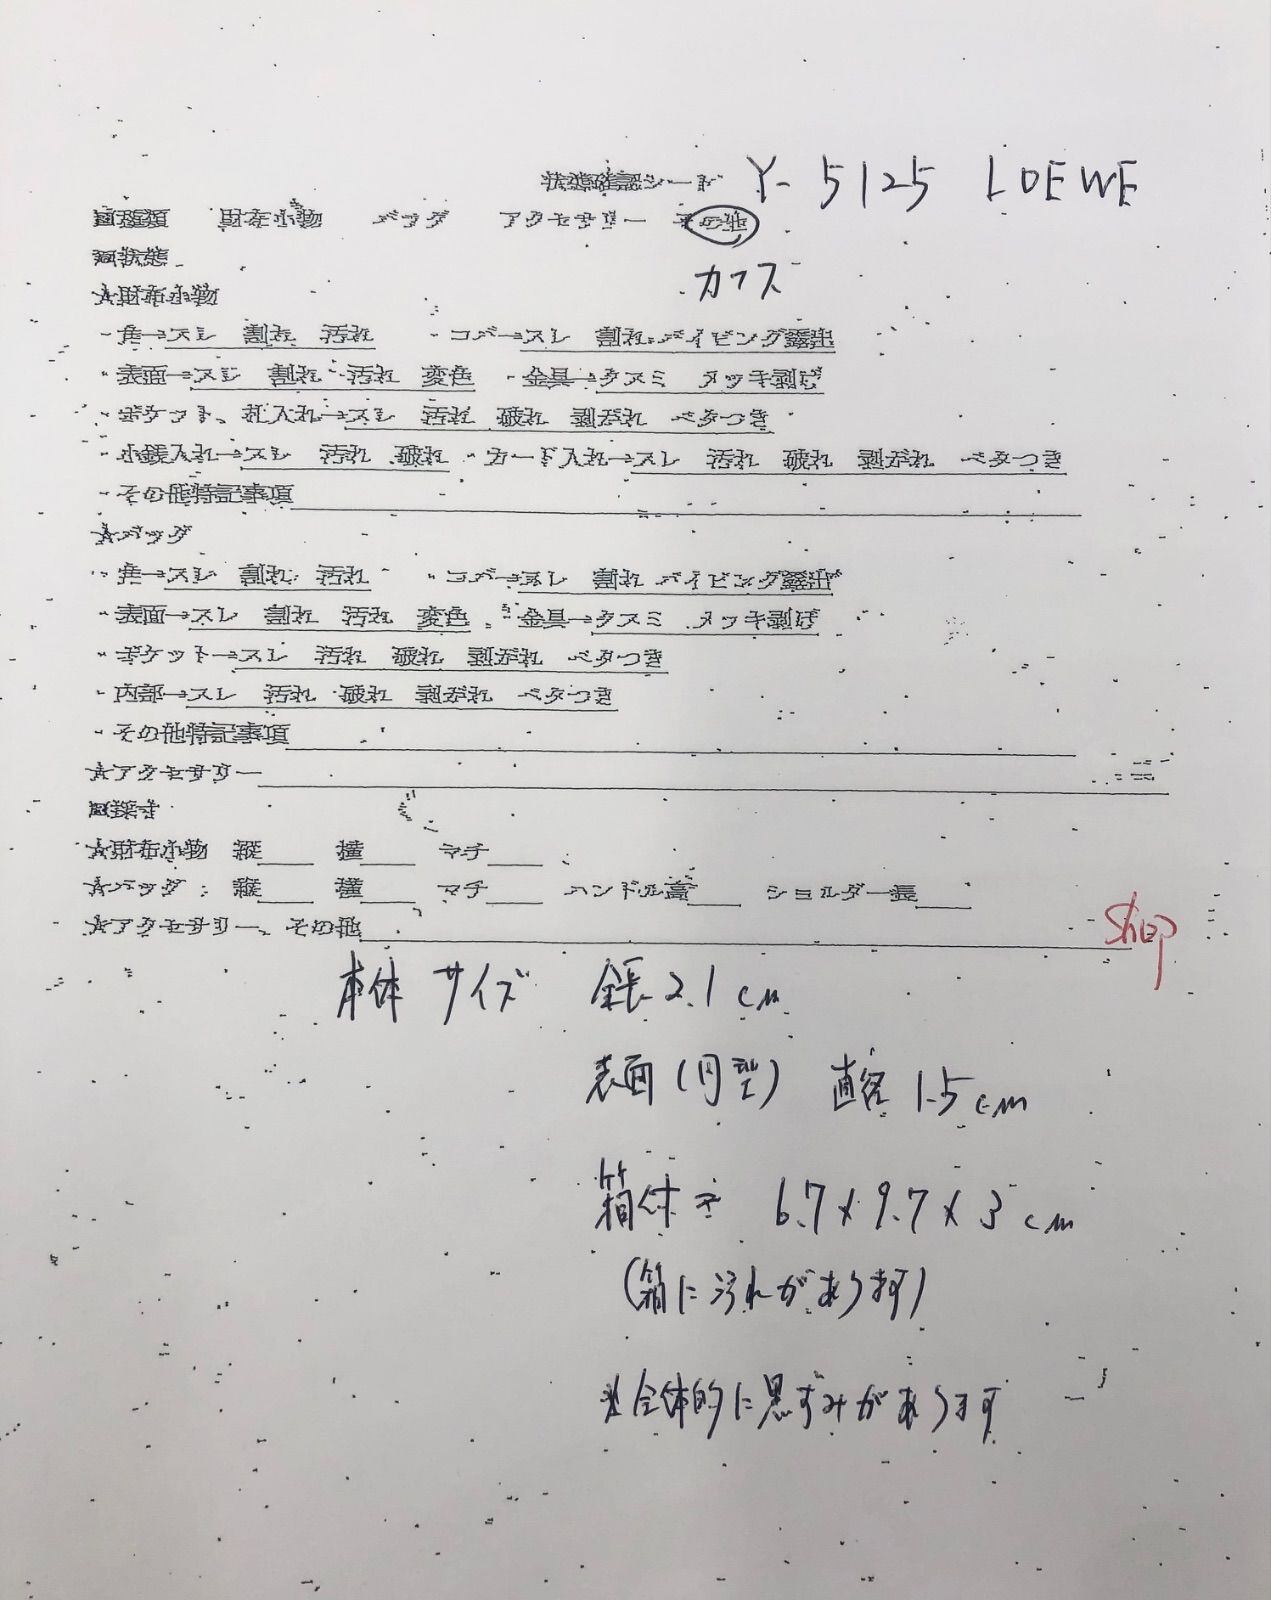 状態確認シート Y-5125 LOEWE
■種類 財布小物 バッグ アクセサリー その他
カフス
■状態
★財布小物
・角→スレ 割れ 汚れ ・コバ→スレ 割れ パイピング露出
・表面→スレ 割れ 汚れ 変色 ・金具→クスミ メッキ剥げ
・ポケット、札入れ→スレ 汚れ 破れ 剥がれ ベタつき
・小銭入れ→スレ 汚れ 破れ ・カード入れ→スレ 汚れ 破れ 剥がれ ベタつき
・その他特記事項
★バッグ
・角→スレ 割れ 汚れ ・コバ→スレ 割れ パイピング露出
・表面→スレ 割れ 汚れ 変色 ・金具→クスミ メッキ剥げ
・ポケット→スレ 汚れ 破れ 剥がれ ベタつき
・内部→スレ 汚れ 破れ 剥がれ ベタつき
・その他特記事項
★アクセサリー
■採寸
★財布小物 縦 横 マチ
★バッグ 縦 横 マチ ハンドル高 ショルダー長
★アクセサリー、その他
Shop
本体サイズ 全長2.1cm
表面(円型) 直径1.5cm
箱付き 6.7×9.7×3cm
(箱に汚れがあります)
※全体的に黒ずみがあります